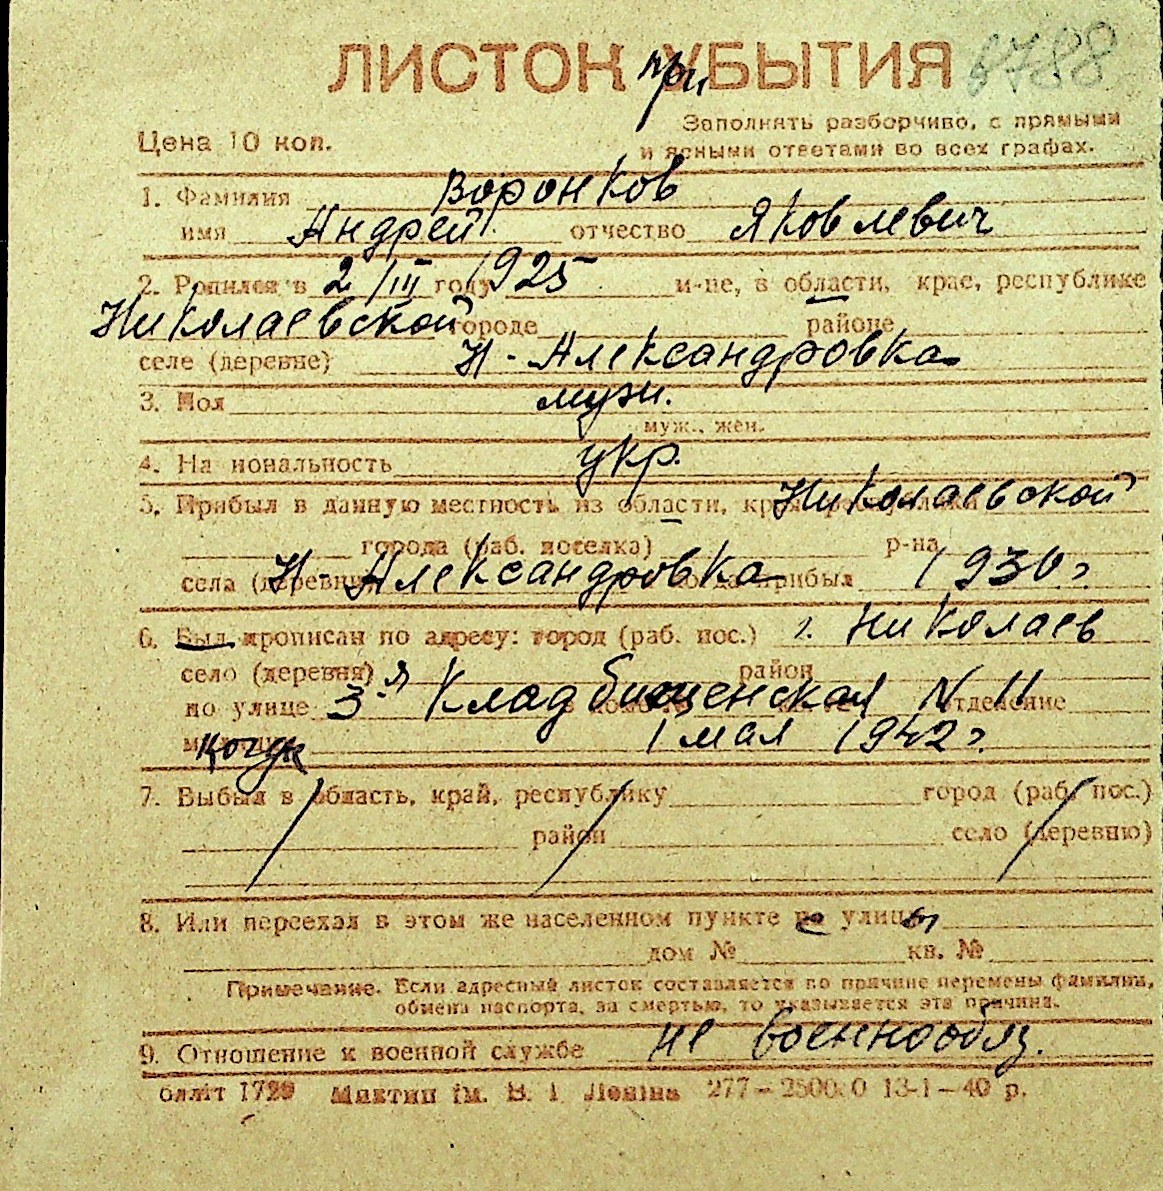 ЛИСТОК при УБЫТИЯ 6788
Заполнять разборчиво, с прямыми
Цена 10 коп. и ясными ответами во всех графах.
1. Фамилия Воронков
имя Андрей отчество Яковлевич
2. Родился в 2/III году 1925 м-це, в области, крае, республике
Николаевской городе районе
селе (деревне) Н-Александровка
3. Пол муж.
муж., жен.
4. На иональность укр.
5. Прибыл в данную местность из области, края, республики Николаевской
города (раб. поселка) р-на
села (деревни) Н-Александровка когда прибыл 1930 г.
6. Был прописан по адресу: город (раб. пос.) г. Николаев
село (деревня) район
по улице 3-я Кладбищенская N 11 отделение
когда 1 мая 1942 г.
7. Выбыл в область, край, республику город (раб. пос.)
район село (деревню)
8. Или переехал в этом же населенном пункте с улицы
дом № кв. №
Примечание. Если адресный листок составляется по причине перемены фамилии,
обмена паспорта, за смертью, то указывается эта причина.
9. Отношение к военной службе не военнообяз.
блліт 1720 Миктип ім. В. І Леніна 277—2500.0 13-1—40 р.